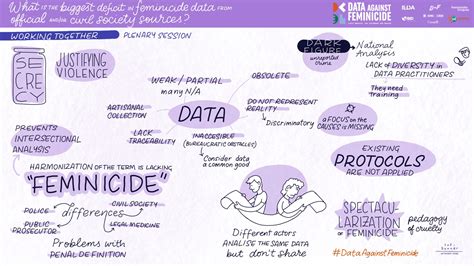 What is the biggest deficit in feminicide data, from
official and/or civil society sources?
DATA AGAINST
FEMINICIDE
ILDA
WORKING TOGETHER
PLENARY SESSION
SECRECY
JUSTIFYING
VIOLENCE
WEAK / PARTIAL
many N/A
OBSOLETE
DARK
FIGURE
unreported
crimes
National
Analysis
LACK of DIVERSITY in
DATA PRACTITIONERS
They need
TRAINING
ARTISANAL
COLLECTION
DATA
DO NOT REPRESENT
REALITY
Discriminatory
a FOCUS on the
CAUSES is MISSING
LACK
TRACEABILITY
INACCESIBLE
(BUREAUCRATIC OBSTACLES)
Consider data
a common good
PREVENTS
INTERSECTIONAL
ANALYSIS
HARMONIZATION OF THE TERM IS LACKING
"FEMINICIDE"
POLICE
CIVIL SOCIETY
differences
PUBLIC
PROSECUTOR
LEGAL MEDICINE
Problems with
PENAL DEFINITION
Different actors
ANALISE THE SAME DATA
but don't share
EXISTING
PROTOCOLS
ARE NOT APPLIED
SPECTACU-
LARIZATION
OF FEMINICIDE
pedagogy
of cruelty
#DataAgainstFeminicide